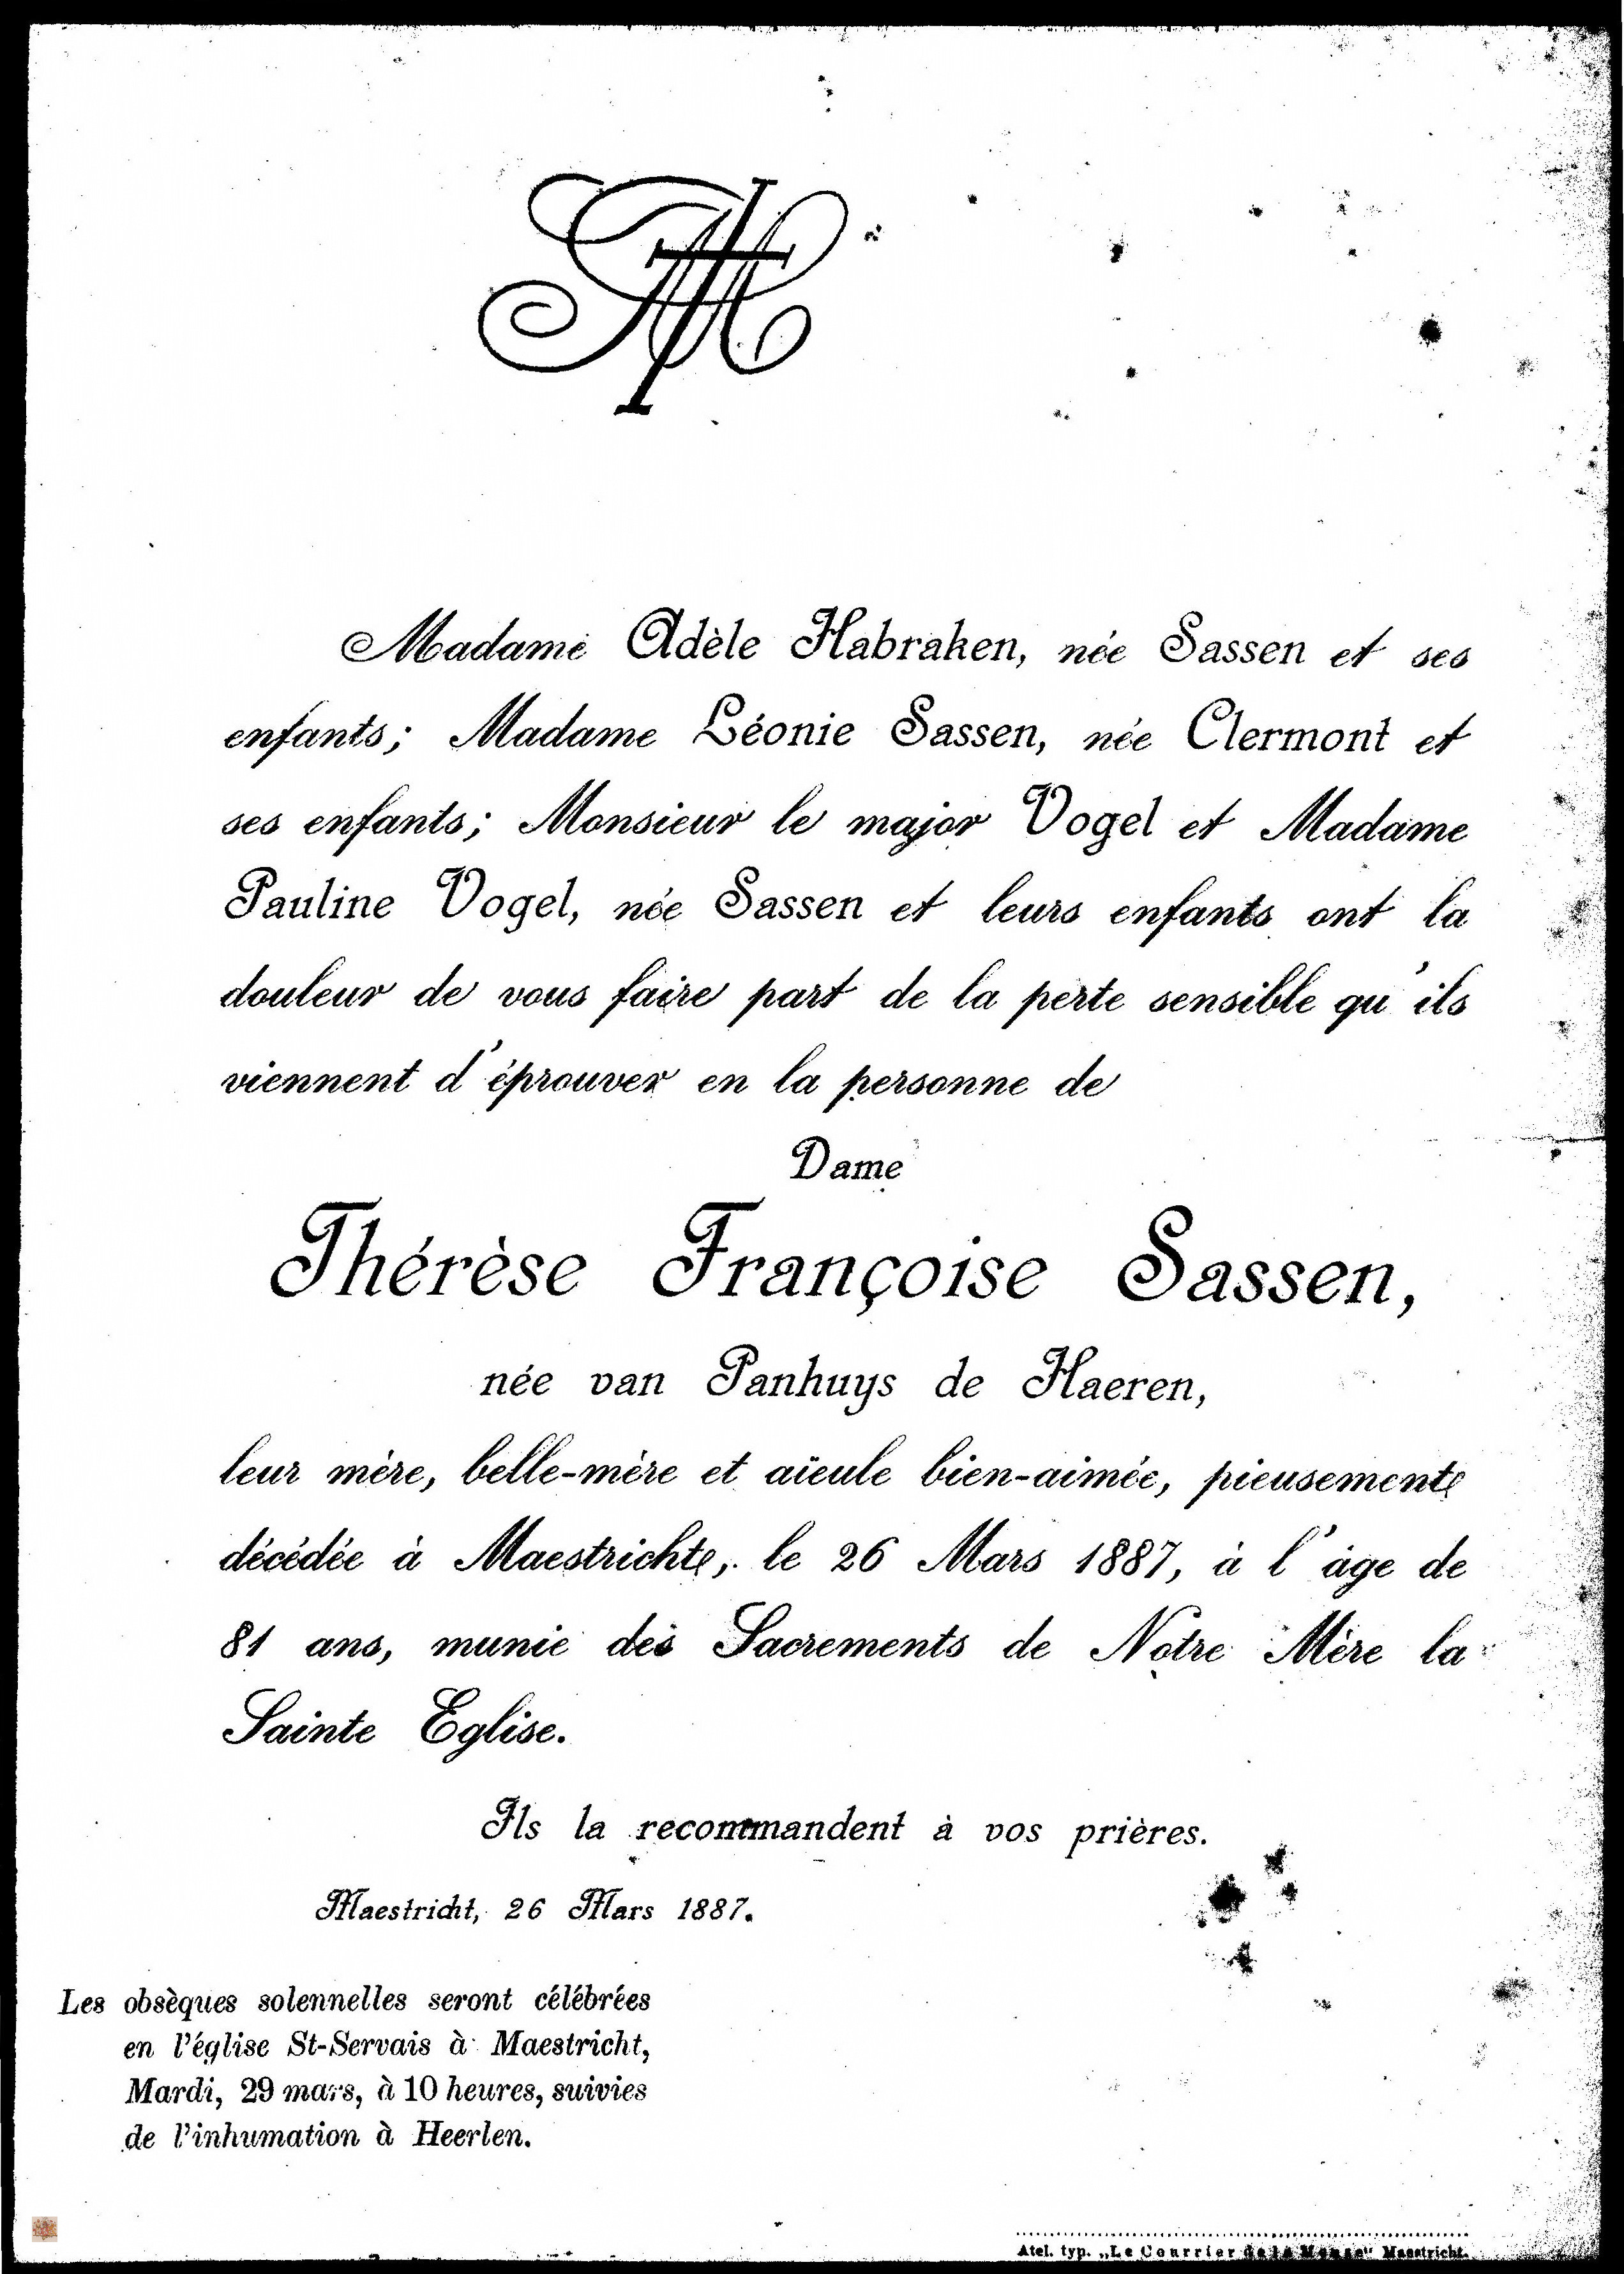 Madame Adèle Habraken, née Sassen et ses
enfants; Madame Léonie Sassen, née Clermont et
ses enfants; Monsieur le major Vogel et Madame
Pauline Vogel, née Sassen et leurs enfants ont la
douleur de vous faire part de la perte sensible qu'ils
viennent d'éprouver en la personne de
Dame
Thérèse Françoise Sassen,
née van Panhuys de Haeren,
leur mère, belle-mère et aïeule bien-aimée, pieusement
décédée à Maestricht, le 26 Mars 1887, à l'âge de
81 ans, munie des Sacrements de Notre Mère la
Sainte Eglise.
Ils la recommandent à vos prières.
Maestricht, 26 Mars 1887.
Les obsèques solennelles seront célébrées
en l'église St-Servais à Maestricht,
Mardi, 29 mars, à 10 heures, suivies
de l'inhumation à Heerlen.
Atel. typ. „Le Courrier de la Meuse" Maestricht.